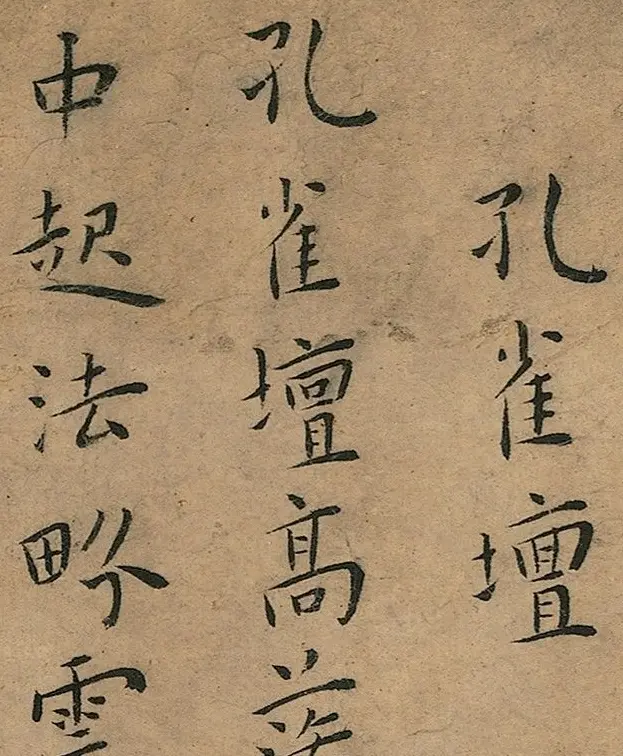 孔雀壇
孔雀壇髙
中起法畍雲